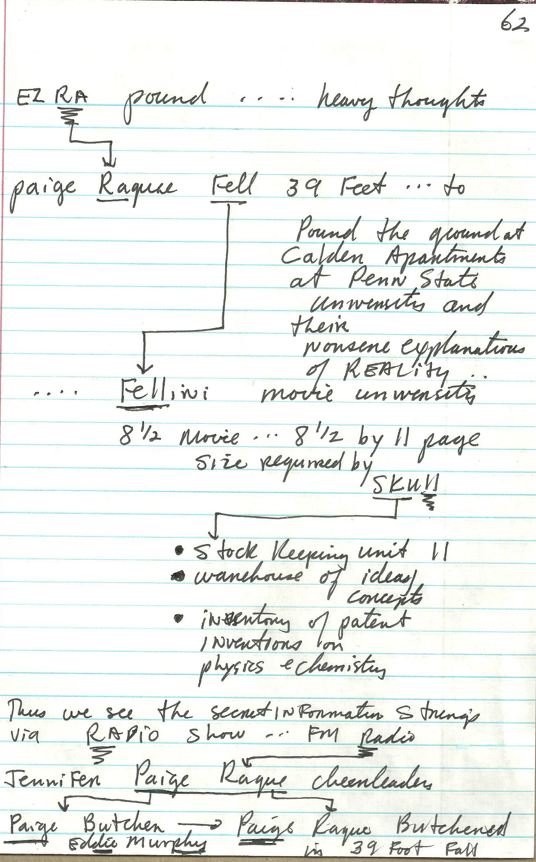 62
EZ RA pound ..... heavy thoughts
paige Raque Fell 39 Feet ... to
Pound the ground at
Calden Apartments
at Penn State
universities and
their
nonsene explanations
of REALity ..
.... Fellini movie universities
8 1/2 Movie ... 8 1/2 by 11 page
size required by
SKull
• Stock Keeping unit 11
• warehouse of ideas/
concepts
• inventory of patent
inventions on
physics & chemistry
Thus we see the secret INFormation Strings
via RADio show ... FM Radio
JenniFer Paige Raque cheerleaders
Paige Butcher → Paige Raque Butchered
Eddie Murphy in 39 Foot Fall